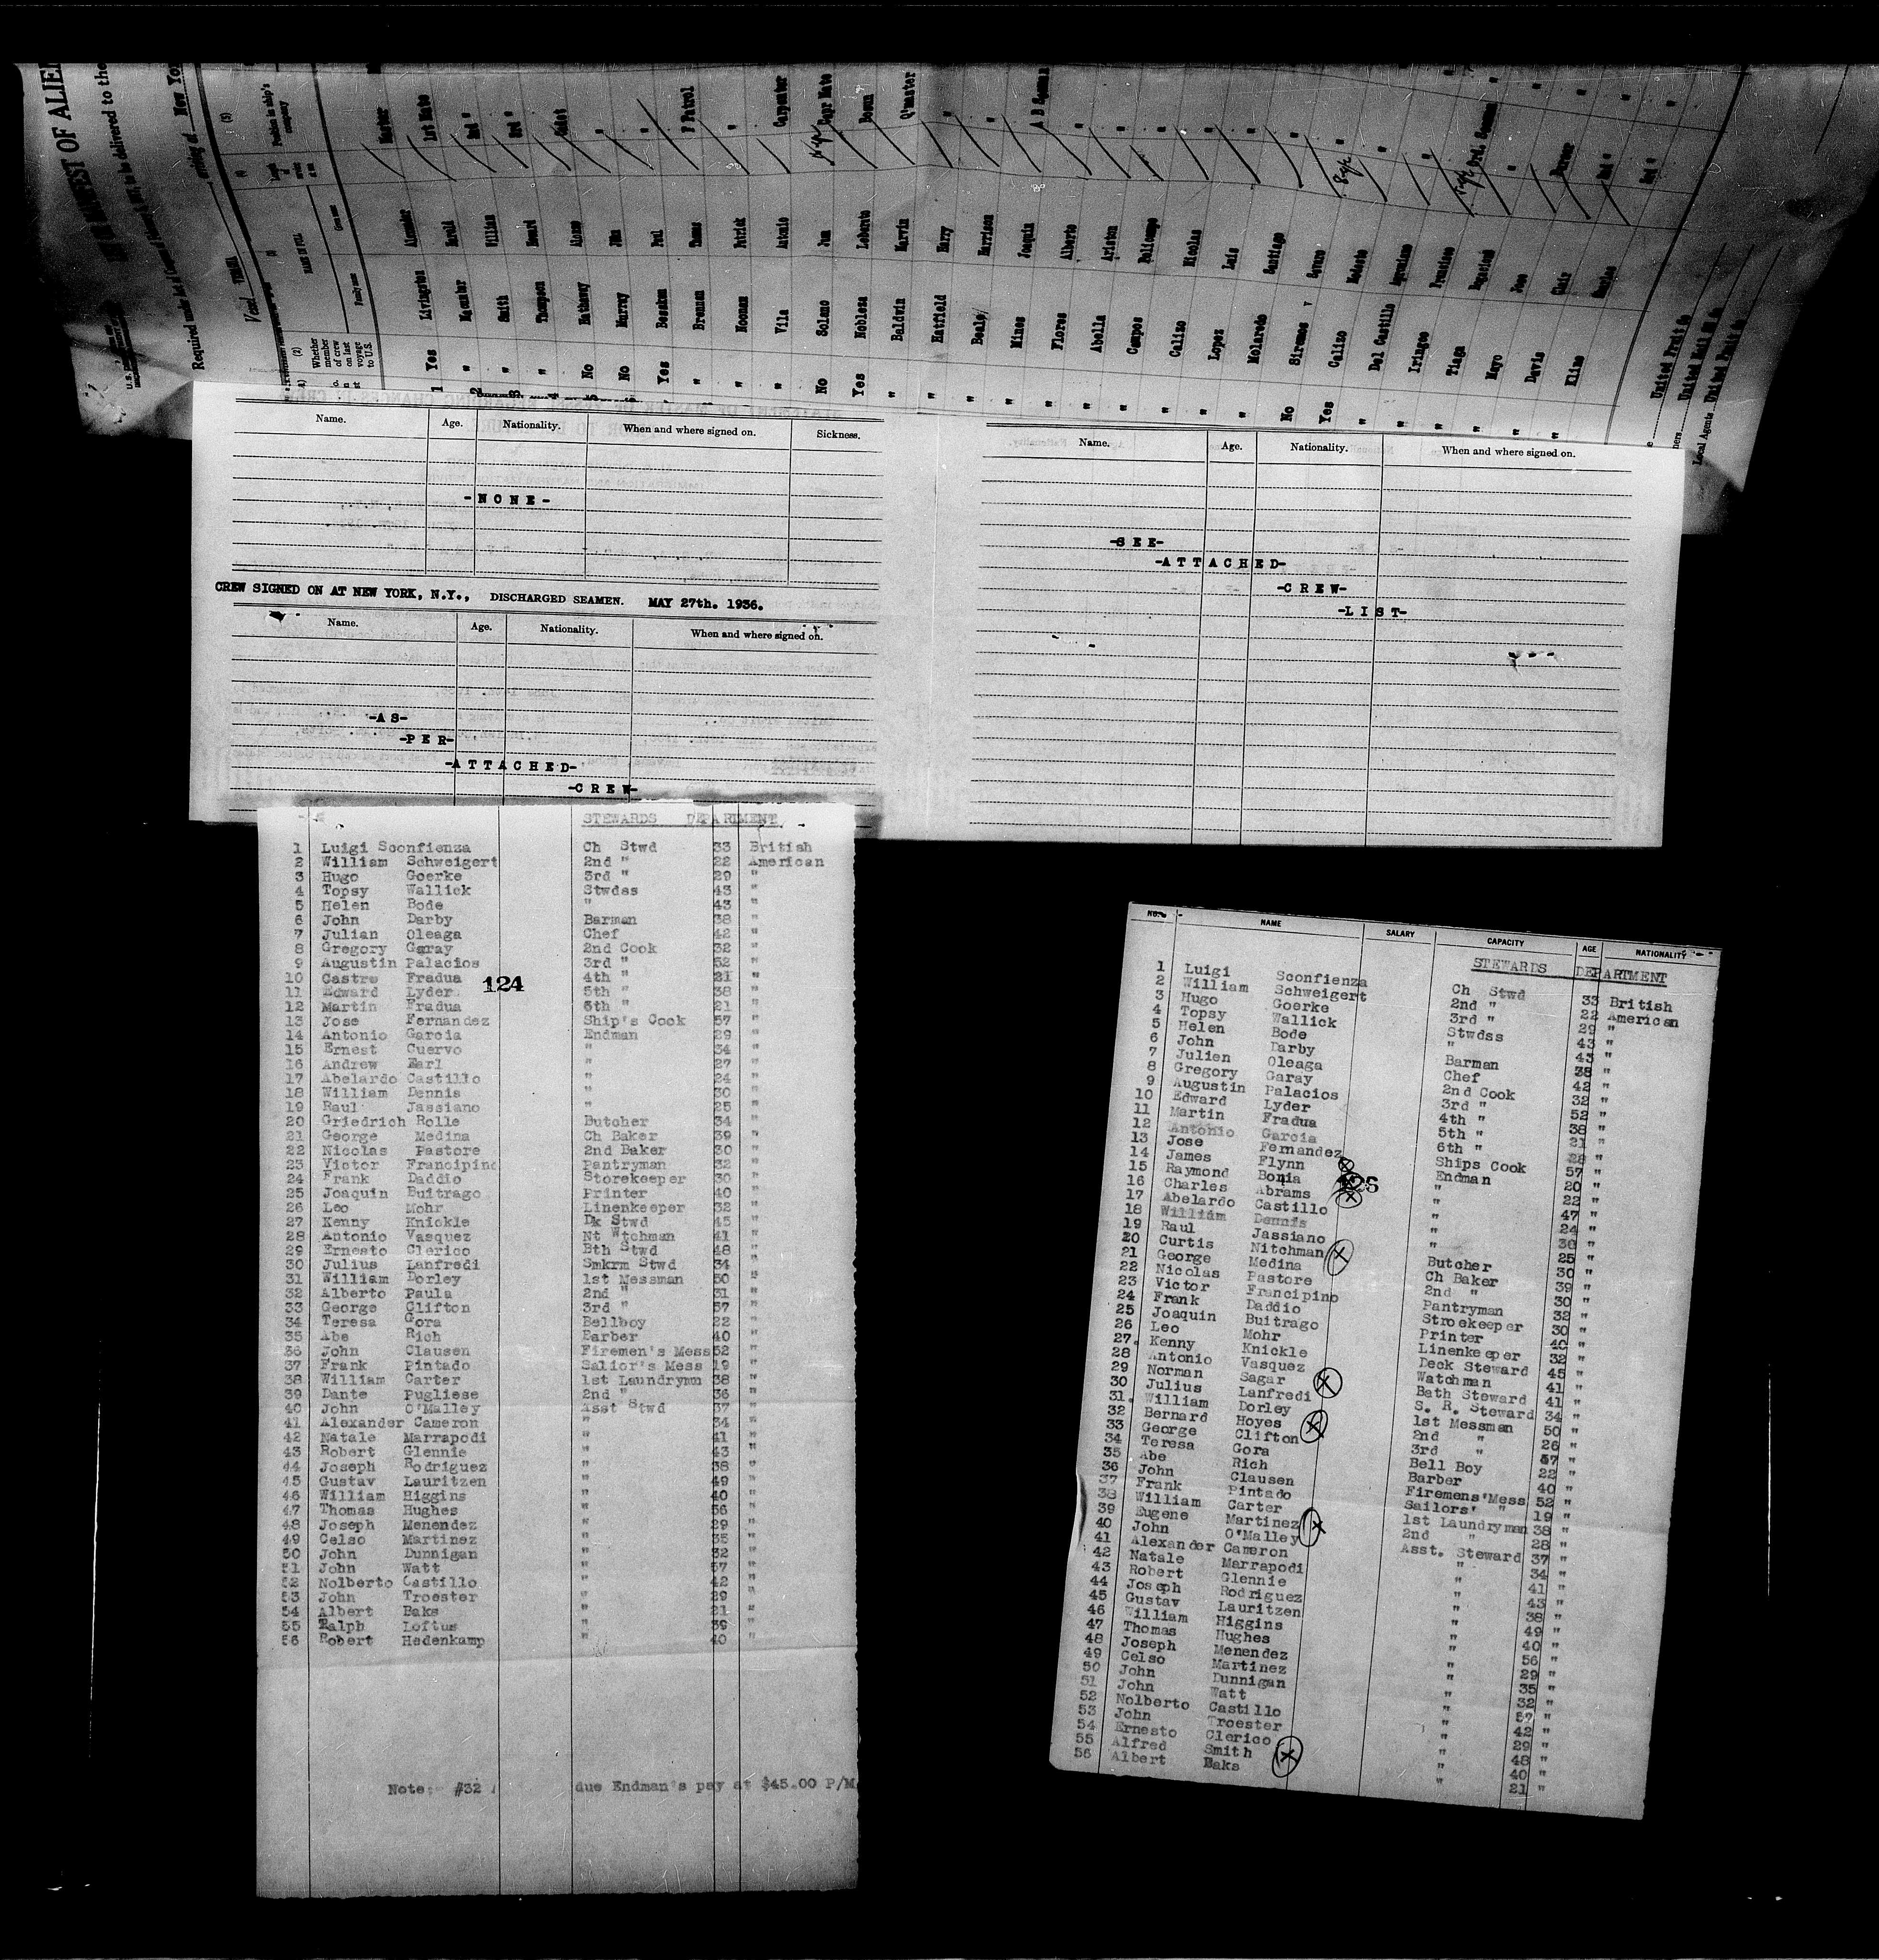 MANIFEST OF ALIEN
to be delivered to the
Required under Act of Congress
arriving at New Yo
Vessel
(2)
Whether member of crew on last voyage to U.S.
NAME IN FULL
Family name
Given name
(3)
Position in ship's company
1 Yes Livingston Alexander Master
2 " Harold 1st Mate
3 " Smith William 2nd "
4 " Thompson Howard 3rd "
No Hathaway Alonzo Cadet
No Murray John "
Yes Paul "
" Brennan Thomas F Patrol
" Noonan Patrick "
" Vila Antonio Carpenter
No Solano Jua Carpr Mate
Yes Nobleza Leborato Bosun
" Baldwin Marvin Q'master
" Hatfield Harry "
" Beale Harrison "
" Mines Joaquin A B Seaman
" Flores Alberto "
" Abella Ariston "
" Campos Policarpo "
" Calizo Nicolas "
" Lopez Luis "
" Molaredo Santiago "
No Sirenes "
Yes Calizo Modesto "
" Del Castillo "
" Iringco "
" Tiaga Ord. Seaman
" Mayo Jose "
" Davis Clair
" Kline
United Fruit Co
United Mail SS Co
Local Agents United Fruit Co
Name. Age. Nationality. When and where signed on. Sickness.
-NONE-
CREW SIGNED ON AT NEW YORK, N.Y., DISCHARGED SEAMEN. MAY 27th. 1936.
Name. Age. Nationality. When and where signed on.
-AS-
-PER-
-ATTACHED-
-CREW-
Name. Age. Nationality. When and where signed on.
-SEE-
-ATTACHED-
-CREW-
-LIST-
STEWARDS DEPARTMENT
1 Luigi Sconfienza Ch Stwd 33 British
2 William Schweigert 2nd " 22 American
3 Hugo Goerke 3rd " 29 "
4 Topsy Wallick Stwdss 43 "
5 Helen Bode " 43 "
6 John Darby Barman 38 "
7 Julian Oleaga Chef 42 "
8 Gregory Garay 2nd Cook 32 "
9 Augustin Palacios 3rd " 52 "
10 Castro Fradua 4th " 21 "
124
11 Edward Lyder 5th " 38 "
12 Martin Fradua 6th " 21 "
13 Jose Fernandez Ship's Cook 57 "
14 Antonio Garcia Endman 29 "
15 Ernest Cuervo " 34 "
16 Andrew Earl " 27 "
17 Abelardo Castillo " 24 "
18 William Dennis " 30 "
19 Raul Jassiano " 25 "
20 Griedrich Rolle Butcher 34 "
21 George Medina Ch Baker 39 "
22 Nicolas Pastore 2nd Baker 30 "
23 Victor Francipino Pantryman 32 "
24 Frank Daddio Storekeeper 30 "
25 Joaquin Buitrago Printer 40 "
26 Leo Mohr Linenkeeper 32 "
27 Kenny Knickle Dk Stwd 45 "
28 Antonio Vasquez Nt Wtchman 41 "
29 Ernesto Clerico Bth Stwd 48 "
30 Julius Lanfredi Smkrm Stwd 34 "
31 William Dorley 1st Messman 50 "
32 Alberto Paula 2nd " 31 "
33 George Clifton 3rd " 57 "
34 Teresa Gora Bellboy 22 "
35 Abe Rich Barber 40 "
36 John Clausen Firemen's Mess 52 "
37 Frank Pintado Salior's Mess 19 "
38 William Carter 1st Laundrymn 38 "
39 Dante Pugliese 2nd " 36 "
40 John O'Malley Asst Stwd 37 "
41 Alexander Cameron " 34 "
42 Natale Marrapodi " 41 "
43 Robert Glennie " 43 "
44 Joseph Rodriguez " 38 "
45 Gustav Lauritzen " 49 "
46 William Higgins " 40 "
47 Thomas Hughes " 56 "
48 Joseph Menendez " 29 "
49 Celso Martinez " 35 "
50 John Dunnigan " 32 "
51 John Watt " 57 "
52 Nolberto Castillo " 42 "
53 John Troester " 29 "
54 Albert Baks " 21 "
55 Ralph Loftus " 39 "
56 Robert Hedenkamp " 40 "
Note: #32 due Endman's pay at $45.00 P/M
NO. NAME SALARY CAPACITY AGE NATIONALITY
STEWARDS DEPARTMENT
1 Luigi Sconfienza Ch Stwd 33 British
2 William Schweigert 2nd " 22 American
3 Hugo Goerke 3rd " 29 "
4 Topsy Wallick Stwdss 43 "
5 Helen Bode " 43 "
6 John Darby Barman 38 "
7 Julien Oleaga Chef 42 "
8 Gregory Garay 2nd Cook 32 "
9 Augustin Palacios 3rd " 52 "
10 Edward Lyder 4th " 38 "
11 Martin Fradua 5th " 21 "
12 Antonio Garcia 6th " "
13 Jose Fernandez Ships Cook 57 "
14 James Flynn Endman 20 "
15 Raymond Bonia " 22 "
16 Charles Abrams " 47 "
17 Abelardo Castillo " 24 "
18 William Dennis " 30 "
19 Raul Jassiano " 25 "
20 Curtis Nitchman Butcher 30 "
21 George Medina Ch Baker 39 "
22 Nicolas Pastore 2nd " 30 "
23 Victor Francipino Pantryman 32 "
24 Frank Daddio Stroekeeper 30 "
25 Joaquin Buitrago Printer 40 "
26 Leo Mohr Linenkeeper 32 "
27. Kenny Knickle Deck Steward 45 "
28 Antonio Vasquez Watchman 41 "
29 Norman Sagar Bath Steward 41 "
30 Julius Lanfredi S. R. Steward 34 "
31. William Dorley 1st Messman 50 "
32 Bernard Hoyes 2nd " 26 "
33 George Clifton 3rd " 57 "
34 Teresa Gora Bell Boy 22 "
35 Abe Rich Barber 40 "
36 John Clausen Firemens'Mess 52 "
37 Frank Pintado Sailors' " 19 "
38 William Carter 1st Laundryman 38 "
39 Eugene Martinez 2nd " 28 "
40 John O'Malley Asst. Steward 37 "
41 Alexander Cameron " 34 "
42 Natale Marrapodi " 41 "
43 Robert Glennie " 43 "
44 Joseph Rodriguez " 38 "
45 Gustav Lauritzen " 49 "
46 William Higgins " 40 "
47 Thomas Hughes " 56 "
48 Joseph Menendez " 29 "
49 Celso Martinez " 35 "
50 John Dunnigan " 32 "
51 John Watt " 57 "
52 Nolberto Castillo " 42 "
53 John Troester " 29 "
54 Ernesto Clerico " 48 "
55 Alfred Smith " 40 "
56 Albert Baks " 21 "